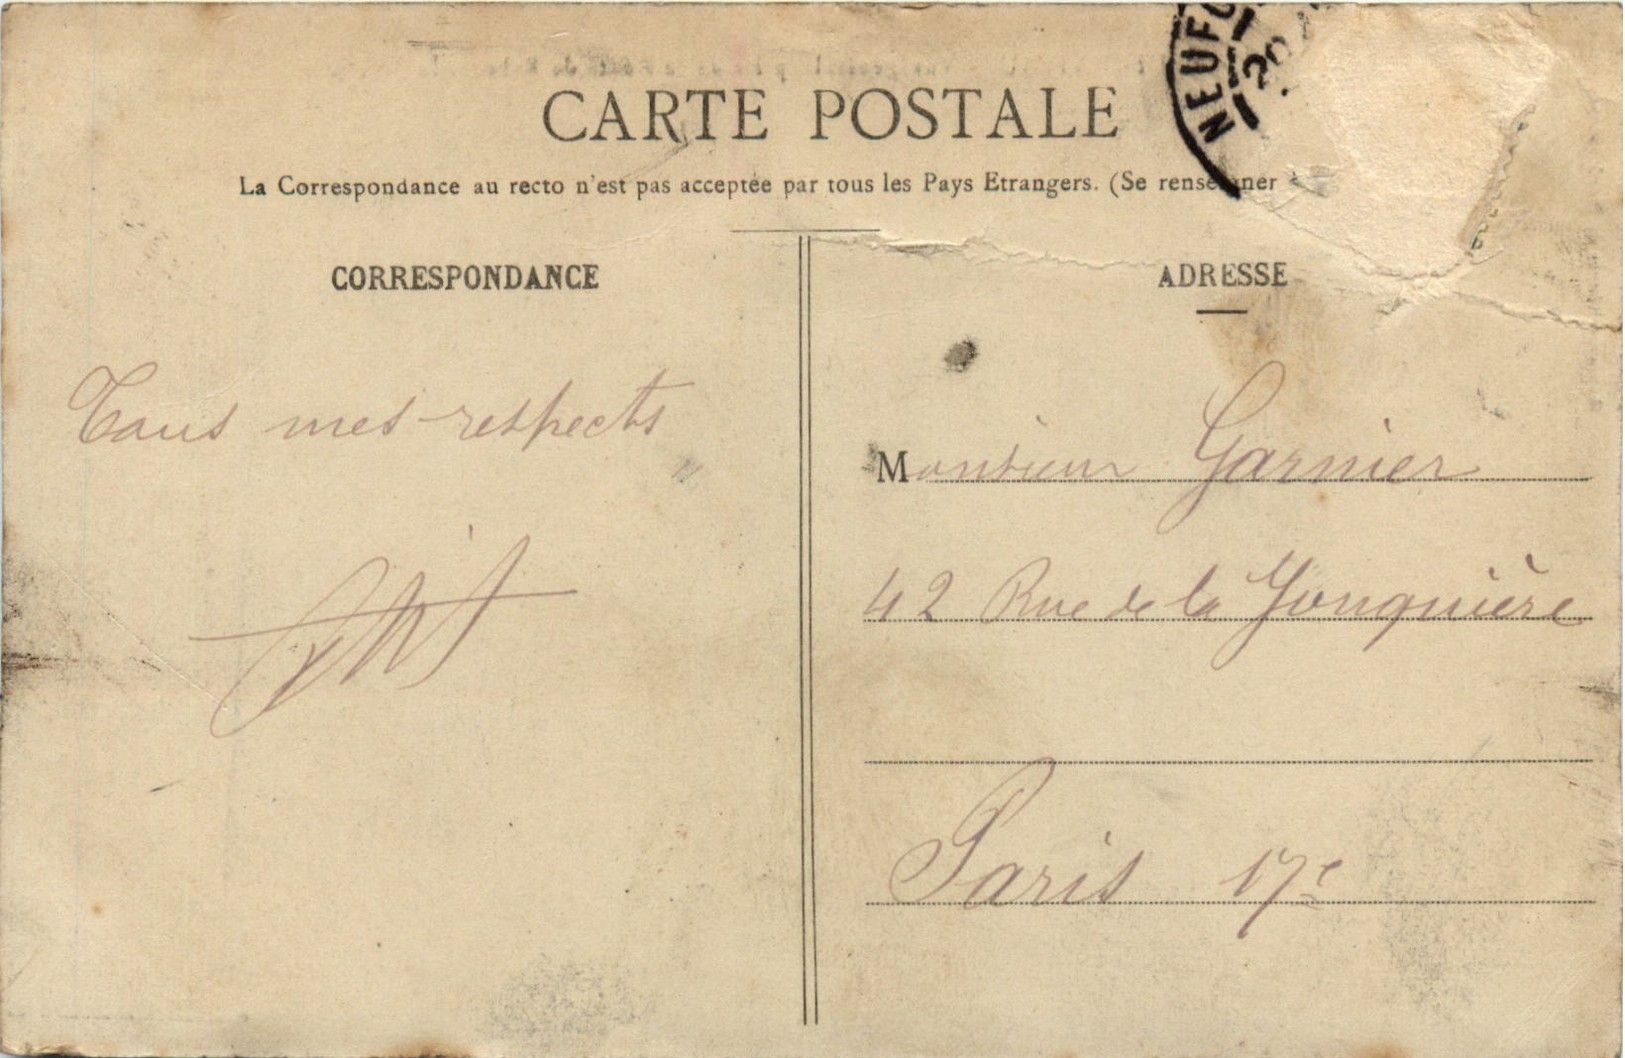 NEUFC
20
CARTE POSTALE
La Correspondance au recto n'est pas acceptée par tous les Pays Etrangers. (Se renseigner
CORRESPONDANCE
ADRESSE
Tous mes respects
Monsieur Garnier
42 Rue de la Jonquière
Paris 17e